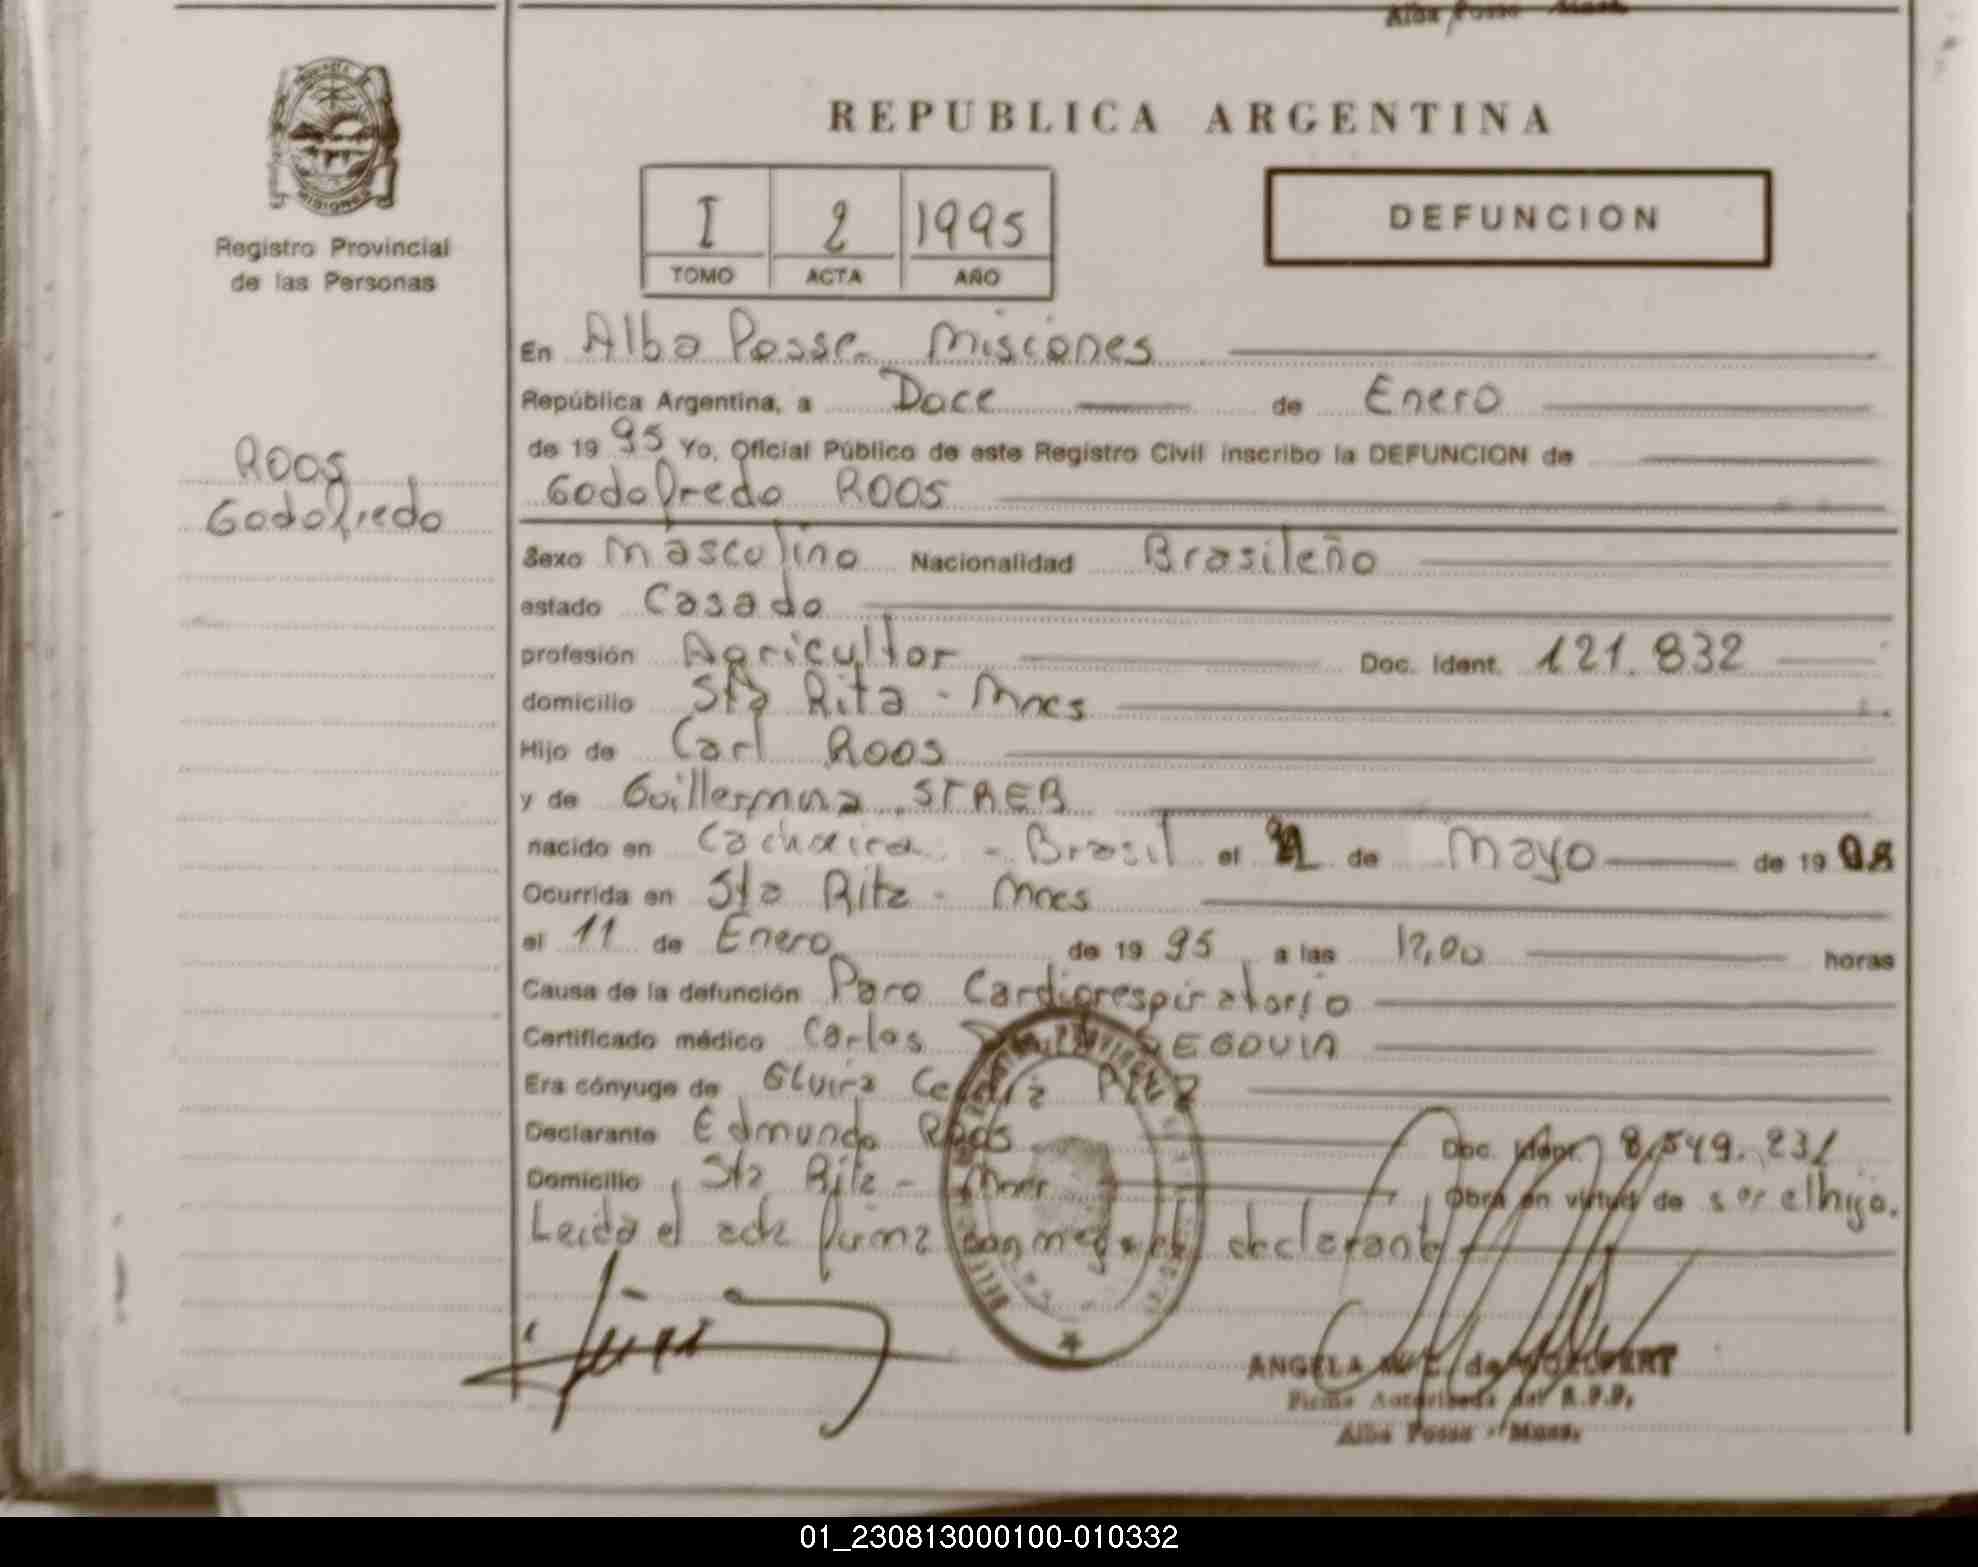 Alba Posse Mnes.
REPUBLICA ARGENTINA
Registro Provincial
de las Personas
I 2 1995
TOMO ACTA AÑO
DEFUNCION
En Alba Posse Misiones
República Argentina, a Doce de Enero
de 19 95 Yo, Oficial Público de este Registro Civil inscribo la DEFUNCION de
Godofredo ROOS
ROOS
Godofredo
Sexo Masculino Nacionalidad Brasileño
estado Casado
profesión Agricultor Doc. Ident. 121.832
domicilio Sta Rita - Mnes
Hijo de Carl ROOS
y de Guillermina STREB
nacido en Cachoeira - Brasil el de Mayo de 19 08
Ocurrida en Sta Rita - Mnes
el 11 de Enero de 19 95 a las 12,00 horas
Causa de la defunción Paro Cardiorespiratorio
Certificado médico Carlos SEGOVIA
Era cónyuge de Elvira
Declarante Edmundo Roos Doc. Ident. 8.549.231
Domicilio Sta Rita - Mnes Obra en virtud de ser el hijo.
Leida el acta firma conmigo el declarante
ANGELA de
Firma Autorizada del R.P.P.
Alba Posse - Mnes.
01_230813000100-010332